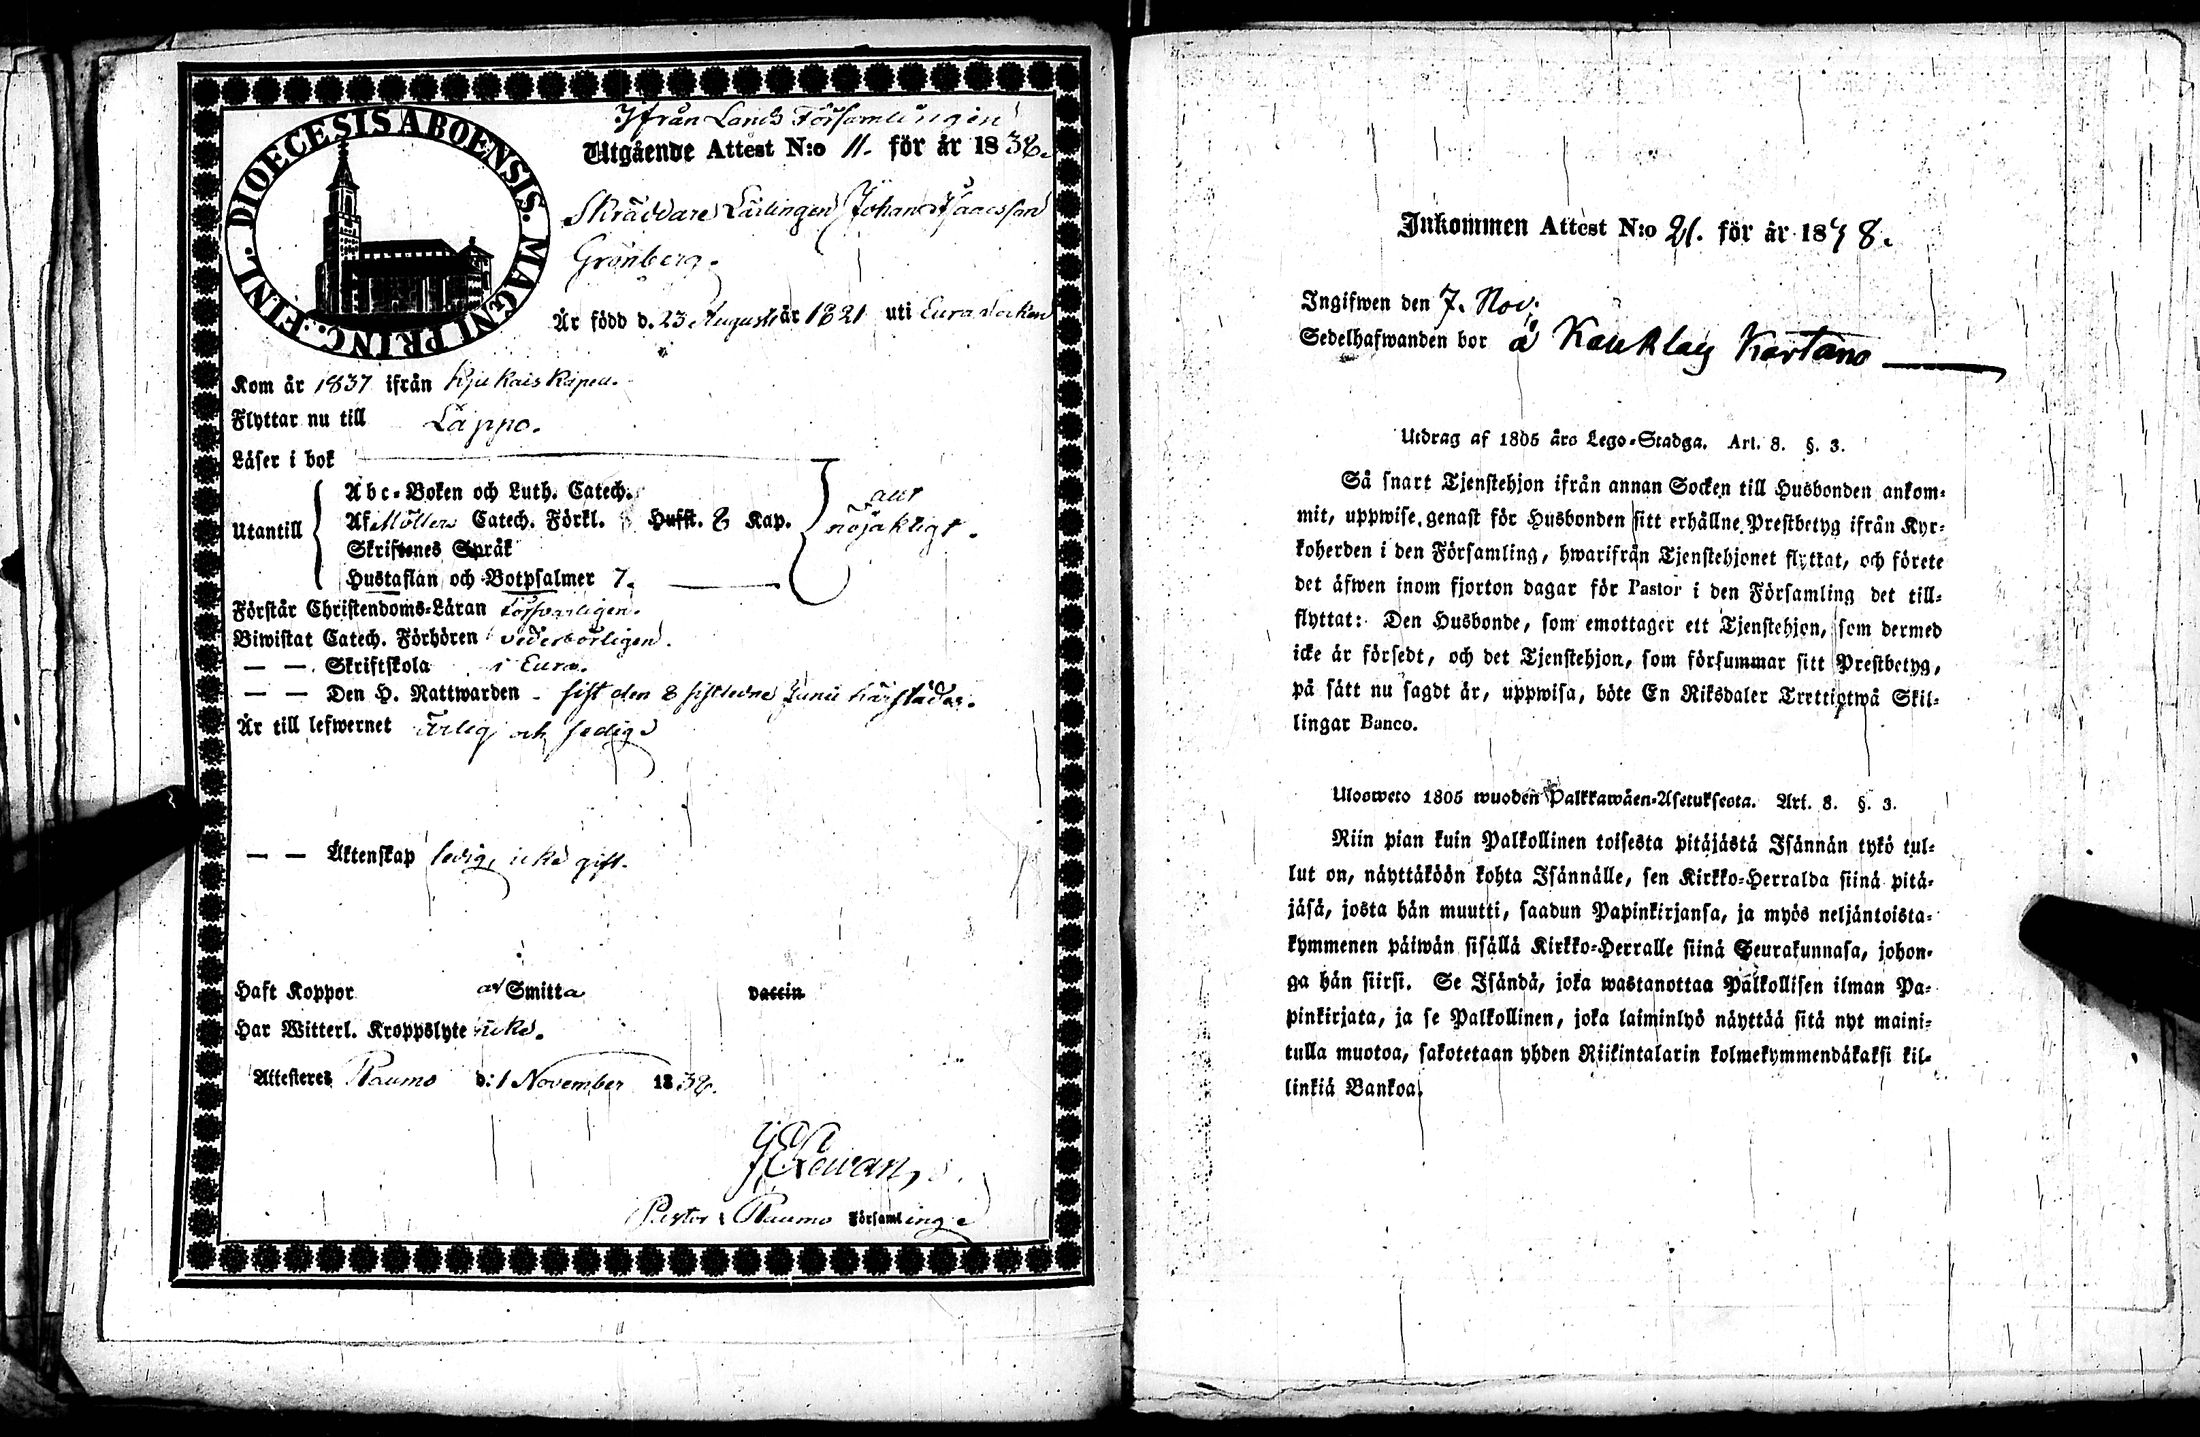 DIOECESIS ABOENSIS. MAGNI PRINC. FINL.
Ifrån Lands Församlingen
Utgående Attest N:o 11. för år 1838.
Skräddare Lärlingen Johan Isaacsson
Grönberg.
Är född d. 23 Augusti år 1821 uti Eura socken
Kom år 1837 ifrån Kjukais Kapell.
Flyttar nu till Lappo.
Läser i bok
Abc-Boken och Luth. Catech.
Utantill
Af Möllers Catech. Förkl. Husst. 8 Kap.
allt
nöjaktigt.
Skriftenes Språk
Hustaflan och Botpsalmer 7.
Förstår Christendoms-Läran försvarligen.
Biwistat Catech. Förhören vederbörligen.
— — Skriftskola i Eura.
— — Den H. Nattwarden sist den 8 sistledne Junii härstädes.
Är till lefwernet ärlig och sedig
— — Äktenskap ledig, icke gift.
Haft Koppor af Smitta vaccin
Har Witterl. Kroppslyte icke.
Attesteres Raumo d: 1 November 1838.
Pastor i Raumo Församlinge
Inkommen Attest N:o 21. för år 18 8.
Ingifwen den 7. Nov;
Sedelhafwanden bor å Kauklais Kartano
Utdrag af 1805 års Lego-Stadga. Art. 8. §. 3.
Så snart Tjenstehjon ifrån annan Socken till Husbonden ankom-
mit, uppwise genast för Husbonden sitt erhållne Prestbetyg ifrån Kyr-
koherden i den Församling, hwarifrån Tjenstehjonet flyttat, och förete
det äfwen inom fjorton dagar för Pastor i den Församling det till-
flyttat: Den Husbonde, som emottager ett Tjenstehjon, som dermed
icke är försedt, och det Tjenstehjon, som försummar sitt Prestbetyg,
på sätt nu sagdt är, uppwisa, böte En Riksdaler Trettiotwå Skil-
lingar Banco.
Ulosweto 1805 wuoden Palkkawäen-Asetuksesta. Art. 8. §. 3.
Niin pian kuin Palkollinen toisesta pitäjästä Isännän tykö tul-
lut on, näyttäköön kohta Isännälle, sen Kirkko-Herralda siinä pitä-
jäsä, josta hän muutti, saadun Papinkirjansa, ja myös neljäntoista-
kymmenen päiwän sisällä Kirkko-Herralle siinä Seurakunnasa, johon-
ga hän siirsi. Se Isändä, joka wastanottaa Palkollisen ilman Pa-
pinkirjata, ja se Palkollinen, joka laiminlyö näyttää sitä nyt maini-
tulla muotoa, sakotetaan yhden Riikintalarin kolmekymmendäkaksi kil-
linkiä Bankoa.